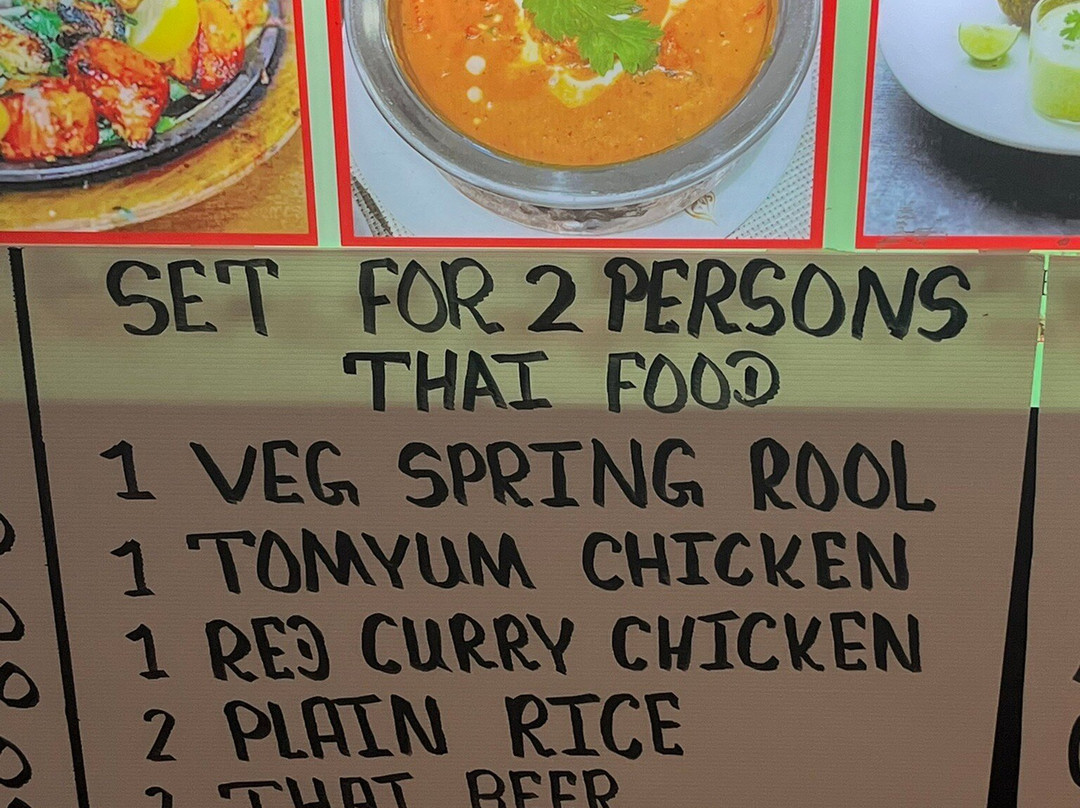 SET FOR 2 PERSONS
THAI FOOD
1 VEG SPRING ROOL
1 TOMYUM CHICKEN
1 RED CURRY CHICKEN
2 PLAIN RICE
2 THAI BEER